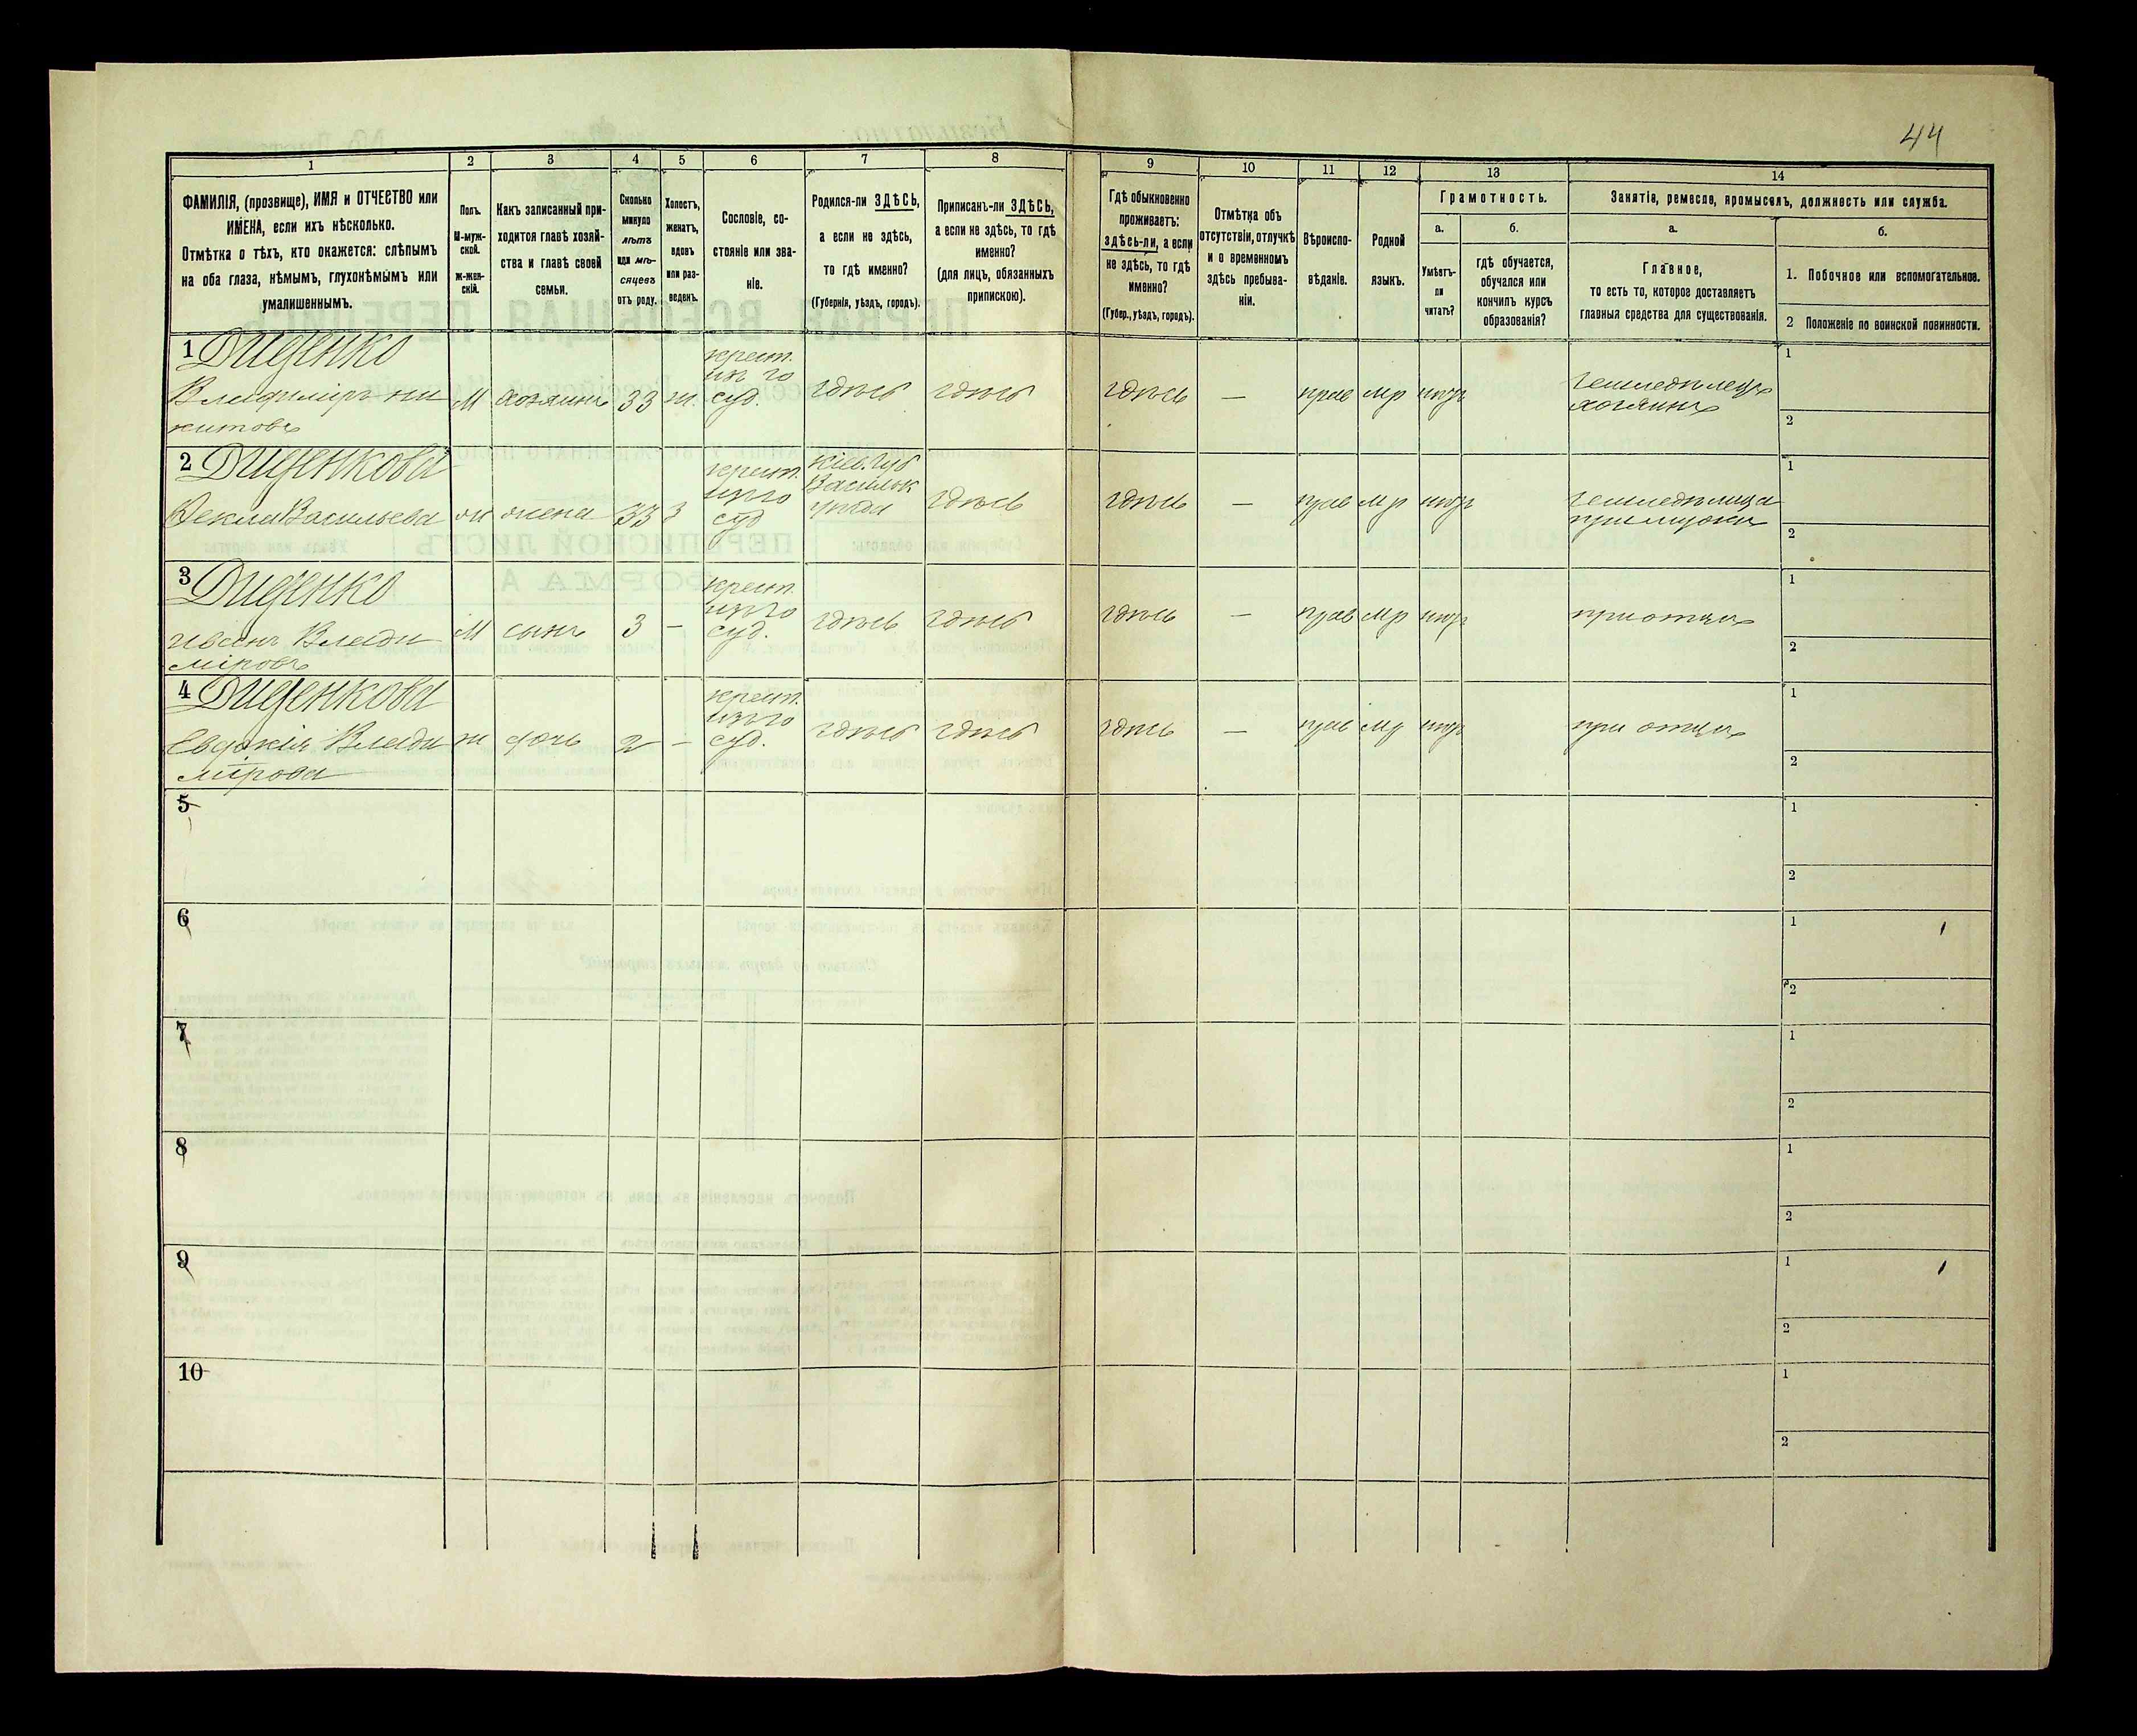 44
1 2 3 4 5 6 7 8 9 10 11 12 13 14
ФАМИЛІЯ, (прозвище), ИМЯ и ОТЧЕСТВО или
ИМЕНА, если ихъ нѣсколько.
Отмѣтка о тѣхъ, кто окажется: слѣпымъ
на оба глаза, нѣмымъ, глухонѣмымъ или
умалишеннымъ.
Полъ.
М-муж-
ской.
ж-жен-
скій.
Какъ записанный при-
ходится главѣ хозяй-
ства и главѣ своей
семьи.
Сколько
минуло
лѣтъ
или мѣ-
сяцевъ
отъ роду.
Холостъ,
женатъ,
вдовъ
или раз-
веденъ.
Сословіе, со-
стояніе или зва-
ніе.
Родился-ли ЗДѢСЬ,
а если не здѣсь,
то гдѣ именно?
(Губернія, уѣздъ, городъ).
Приписанъ-ли ЗДѢСЬ,
а если не здѣсь, то гдѣ
именно?
(для лицъ, обязанныхъ
припискою).
Гдѣ обыкновенно
проживаетъ:
здѣсь-ли, а если
не здѣсь, то гдѣ
именно?
(Губер., уѣздъ, городъ).
Отмѣтка объ
отсутствіи, отлучкѣ
и о временномъ
здѣсь пребыва-
ніи.
Вѣроиспо-
вѣданіе.
Родной
языкъ.
Грамотность.
а.
Умѣетъ-
ли
читать?
б.
гдѣ обучается,
обучался или
кончилъ курсъ
образованія?
Занятіе, ремесло, промыселъ, должность или служба.
а.
Главное,
то есть то, которое доставляетъ
главныя средства для существованія.
б.
1. Побочное или вспомогательное.
2 Положеніе по воинской повинности.
1 Диденко
Владиміръ Ни
китовъ
М
хозяинъ
33
ж.
крест.
из го
суд.
здѣсь
здѣсь
здѣсь
—
прав
мр
нѣтъ
земледѣлецъ
хозяинъ
1
2
2 Диденкова
Фекла Васильева
ж
жена
33
З
крест.
из го
суд
Кіев. губ
Васильк
уѣзда
здѣсь
здѣсь
—
прав
мр
нѣтъ
земледѣлица
при мужѣ
1
2
3 Диденко
Иванъ Влади
міровъ
М
сынъ
3
—
крест.
из го
суд.
здѣсь
здѣсь
здѣсь
—
прав
мр
нѣтъ
при отцѣ
1
2
4 Диденкова
Евдокія Влади
мірова
ж
дочь
2
—
крест.
из го
суд.
здѣсь
здѣсь
здѣсь
—
прав
мр
нѣтъ
при отцѣ
1
2
5
1
2
6
1
2
7
1
2
8
1
2
9
1
2
10
1
2